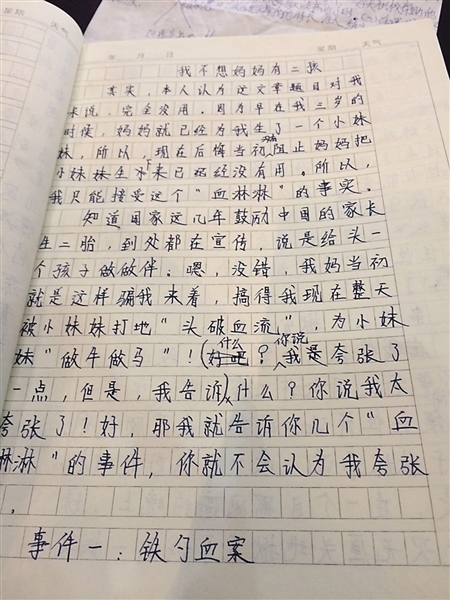 星期 天气
年 月 日 星期 天气
我不想妈妈有二孩
其实，本人认为这文章题目对我
来说，完全没用。因为早在我三岁的
时候，妈妈就已经为我生了一个小妹
妹，所以，现在后悔当初阻止妈妈把
小妹妹生下来已经没有用。所以，
我只能接受这个“血淋淋”的事实。
知道国家这几年鼓励中国的家长
生二胎，到处都在宣传，说是给头一
个孩子做做伴。嗯，没错，我妈当初
就是这样骗我来着，搞得我现在整天
被小妹妹打地“头破血流”，为小妹
妹“做牛做马”！（什么？你说我是夸张了
一点，但是，我告诉）什么？你说我太
夸张了！好，那我就告诉你几个“血
淋淋”的事件，你就不会认为我夸张
。
事件一：铁勺血案